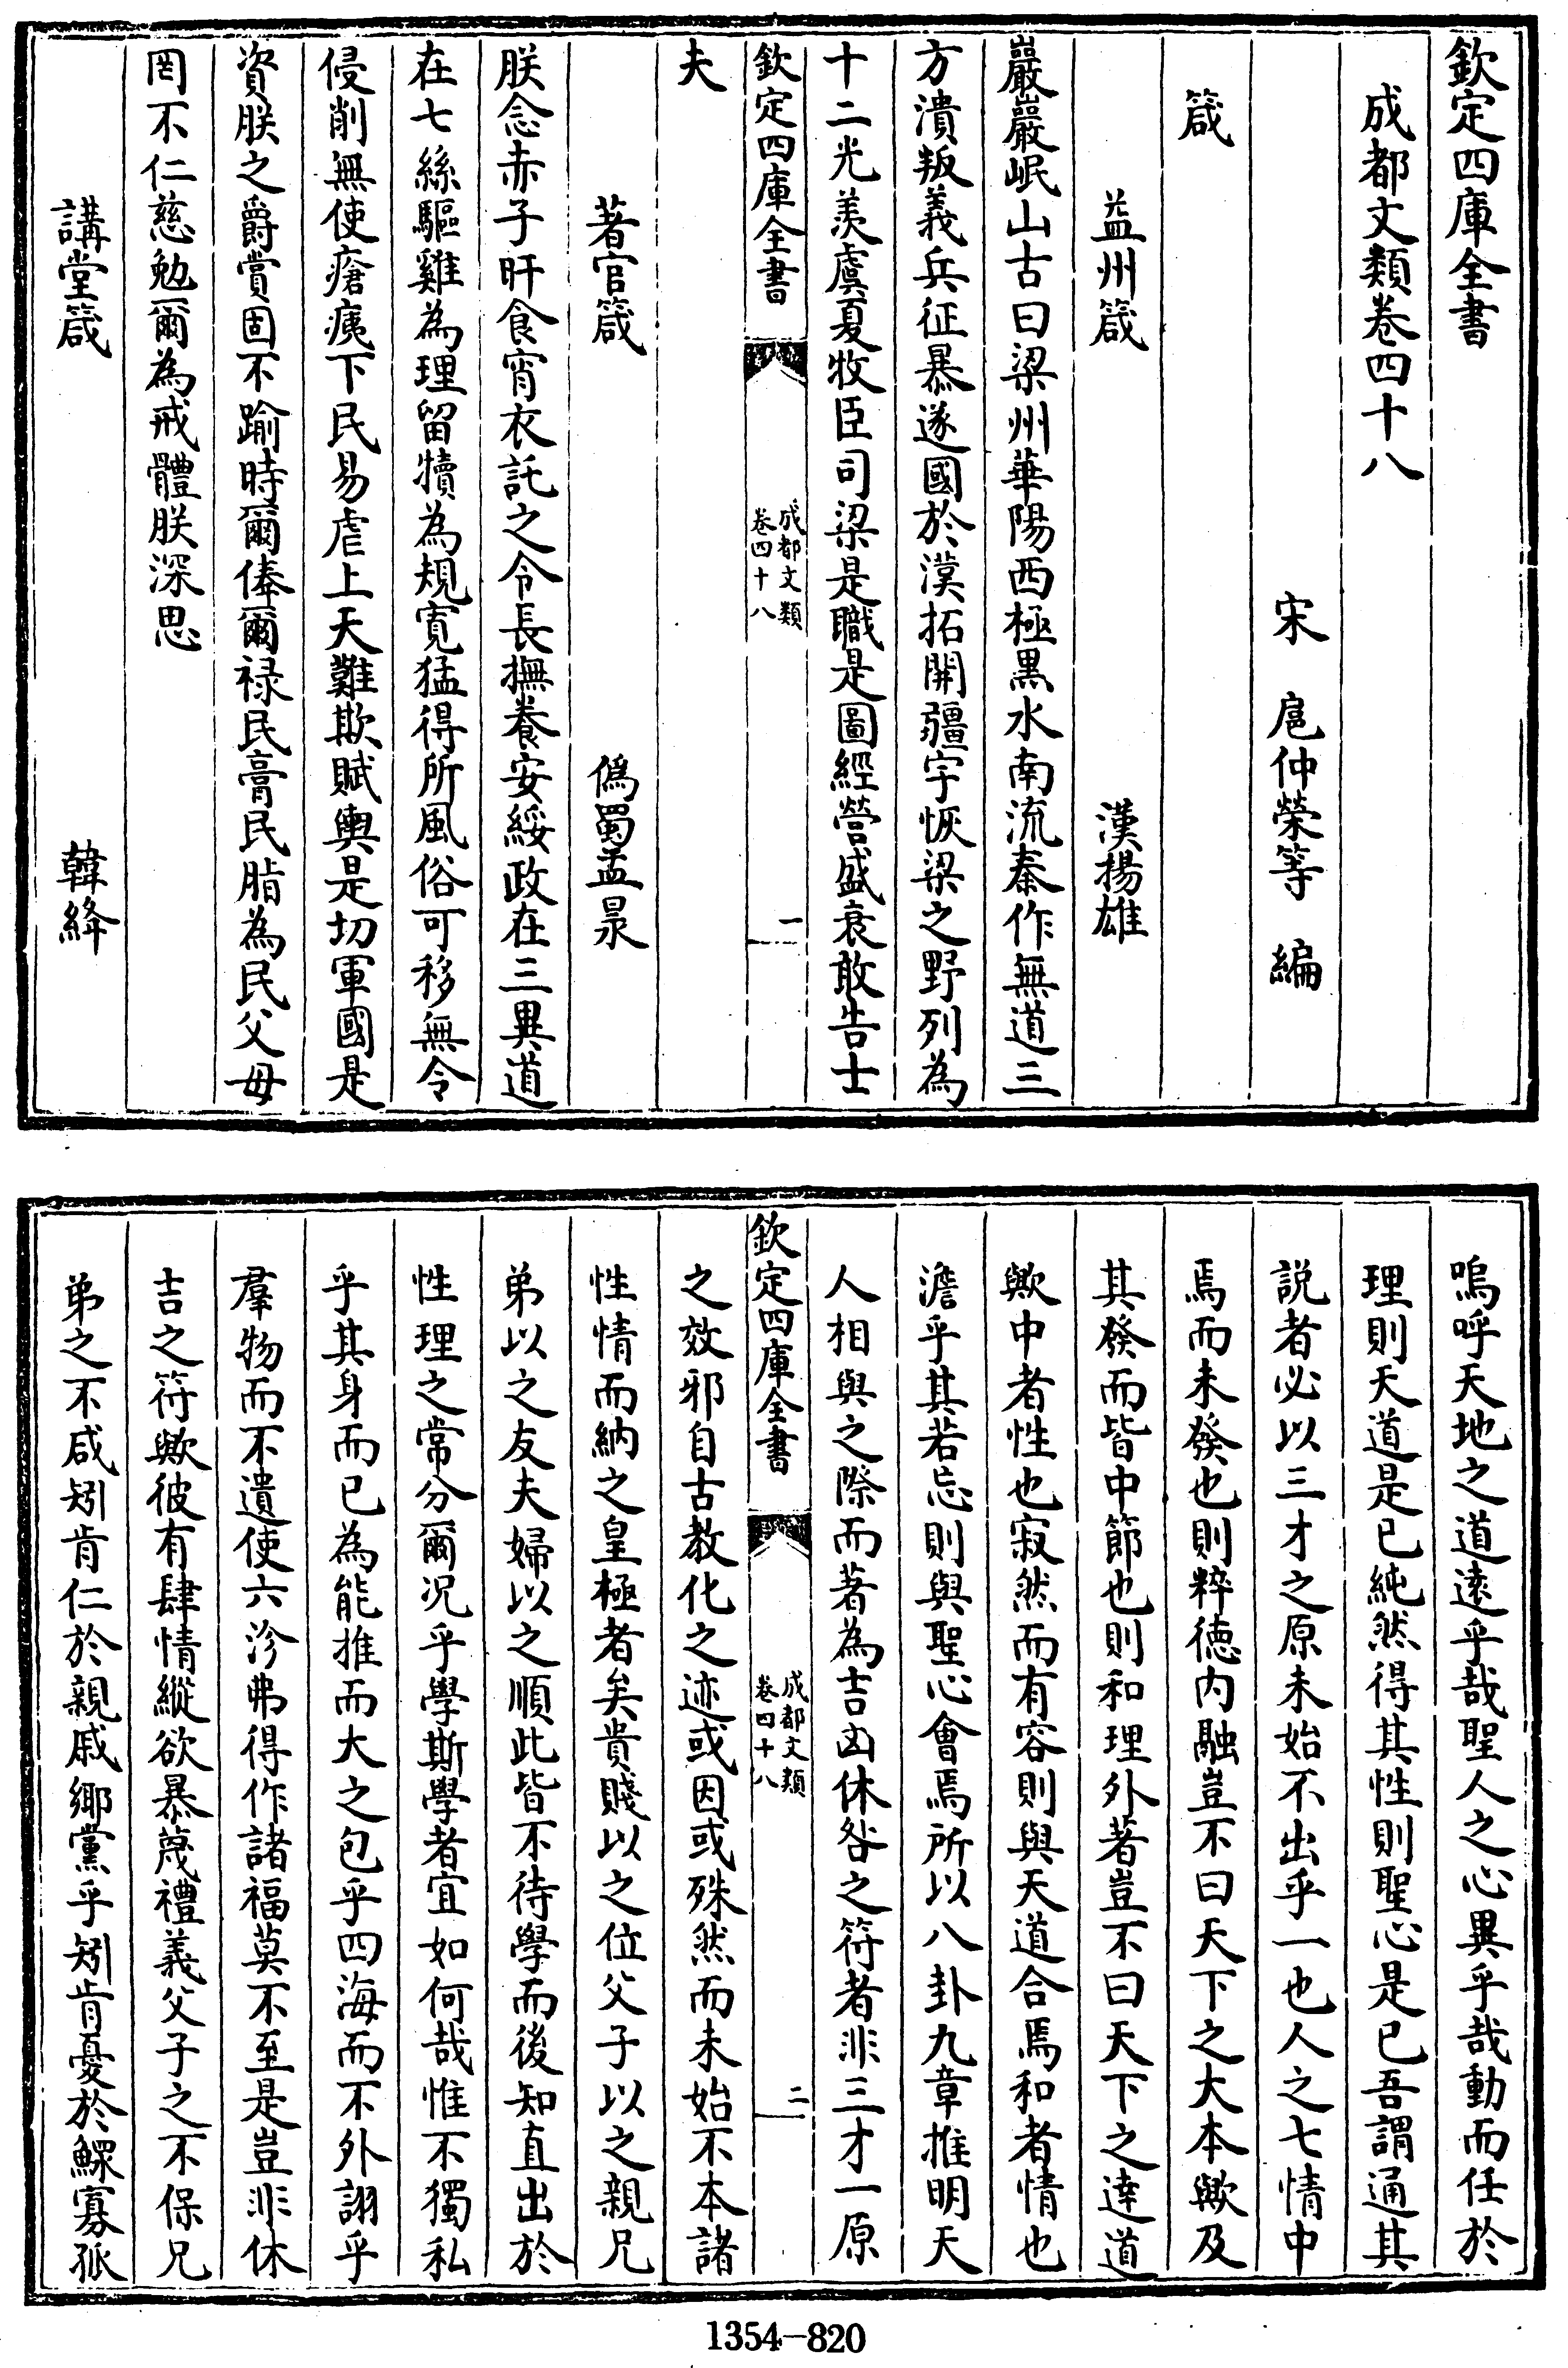 欽定四庫全書
成都文類卷四十八
宋　扈仲榮等　編
箴
益州箴　漢揚雄
巖巖岷山古曰梁州華陽西極黑水南流秦作無道三
方潰叛義兵征暴遂國於漢拓開疆宇恢梁之野列為
十二光羨虞夏牧臣司梁是職是圖經營盛衰敢告士
欽定四庫全書
成都文類
卷四十八
一
夫
著官箴　偽蜀孟昶
朕念赤子旰食宵衣託之令長撫養安綏政在三異道
在七絲驅雞為理留犢為規寬猛得所風俗可移無令
侵削無使瘡痍下民易虐上天難欺賦輿是切軍國是
資朕之爵賞固不踰時爾俸爾禄民膏民脂為民父母
罔不仁慈勉爾為戒體朕深思
講堂箴　韓絳
嗚呼天地之道遠乎哉聖人之心異乎哉動而任於
理則天道是已純然得其性則聖心是已吾謂通其
説者必以三才之原未始不出乎一也人之七情中
焉而未發也則粹德内融豈不曰天下之大本歟及
其發而皆中節也則和理外著豈不曰天下之達道
歟中者性也寂然而有容則與天道合焉和者情也
澹乎其若忘則與聖心會焉所以八卦九章推明天
人相與之際而著為吉凶休咎之符者非三才一原
欽定四庫全書
成都文類
卷四十八
二
之效邪自古教化之迹或因或殊然而未始不本諸
性情而納之皇極者矣貴賤以之位父子以之親兄
弟以之友夫婦以之順此皆不待學而後知直出於
性理之常分爾況乎學斯學者宜如何哉惟不獨私
乎其身而已為能推而大之包乎四海而不外詡乎
羣物而不遺使六沴弗得作諸福莫不至是豈非休
吉之符歟彼有肆情縱欲暴蔑禮義父子之不保兄
弟之不咸矧肯仁於親戚鄉黨乎矧肯憂於鰥寡孤
1354-820